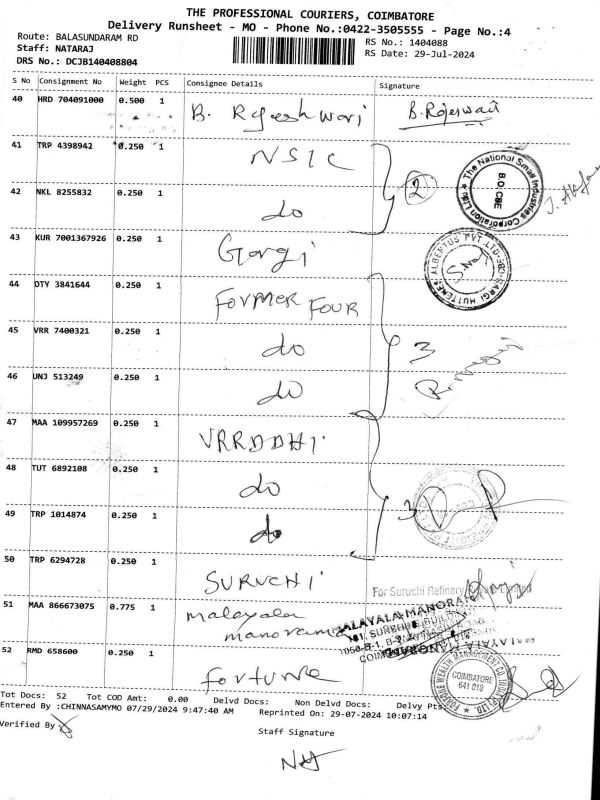 THE PROFESSIONAL COURIERS, COIMBATORE
Delivery Runsheet - MO - Phone No.:0422-3505555 - Page No.:4
Route: BALASUNDARAM RD
RS No.: 1404088
Staff: NATARAJ
RS Date: 29-Jul-2024
DRS No.: DCJB140408804
S No Consignment No Weight PCS Consignee Details Signature
40 HRD 704091000 0.500 1 B. Rajeshwari B.Rajeswari
41 TRP 4398942 0.250 1 NSIC
2
The National Small Industries Corporation Ltd
B.O. CBE
42 NKL 8255832 0.250 1 do
43 KUR 7001367926 0.250 1 Gargi
44 OTY 3841644 0.250 1 FORMER FOUR
45 VRR 7400321 0.250 1 do 3
46 UNJ 513249 0.250 1 do
47 MAA 109957269 0.250 1 VRRDDHI
48 TUT 6892108 0.250 1 do
49 TRP 1014874 0.250 1 do 3
50 TRP 6294728 0.250 1 SURUCHI
For Suruchi Refinery
51 MAA 866673075 0.775 1 malayala
manorama
MALAYALA MANORAMA
52 RMD 658600 0.250 1 fortune
COIMBATORE
641 018
Tot Docs: 52 Tot COD Amt: 0.00 Delvd Docs: Non Delvd Docs: Delvy Pts:
Entered By :CHINNASAMYMO 07/29/2024 9:47:40 AM Reprinted On: 29-07-2024 10:07:14
Verified By
Staff Signature